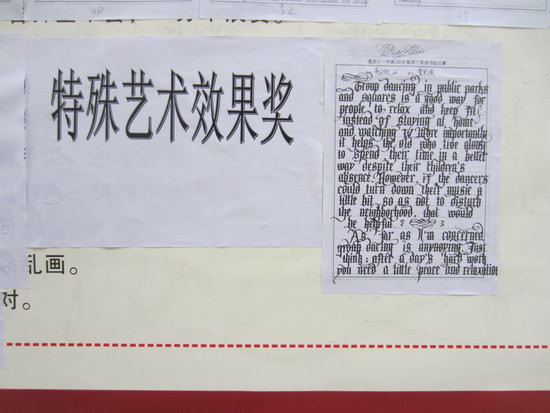 40
32
27
特殊艺术效果奖
Group dancing in public parks
and squares is a good way for
people to relax and keep fit
instead of staying at home
and watching tv. More importantly
it helps the old who live alone
to spend their time in a better
way despite their children's
absence. However, if the dancers
could turn down their music a
little bit, so as not to disturb
the neighborhood, that would
be helpful.
As far as I'm concerned,
group dacing is annyoying. Just
think: after a day's hard work
you need a little peace and relaxation
乱画。
对。